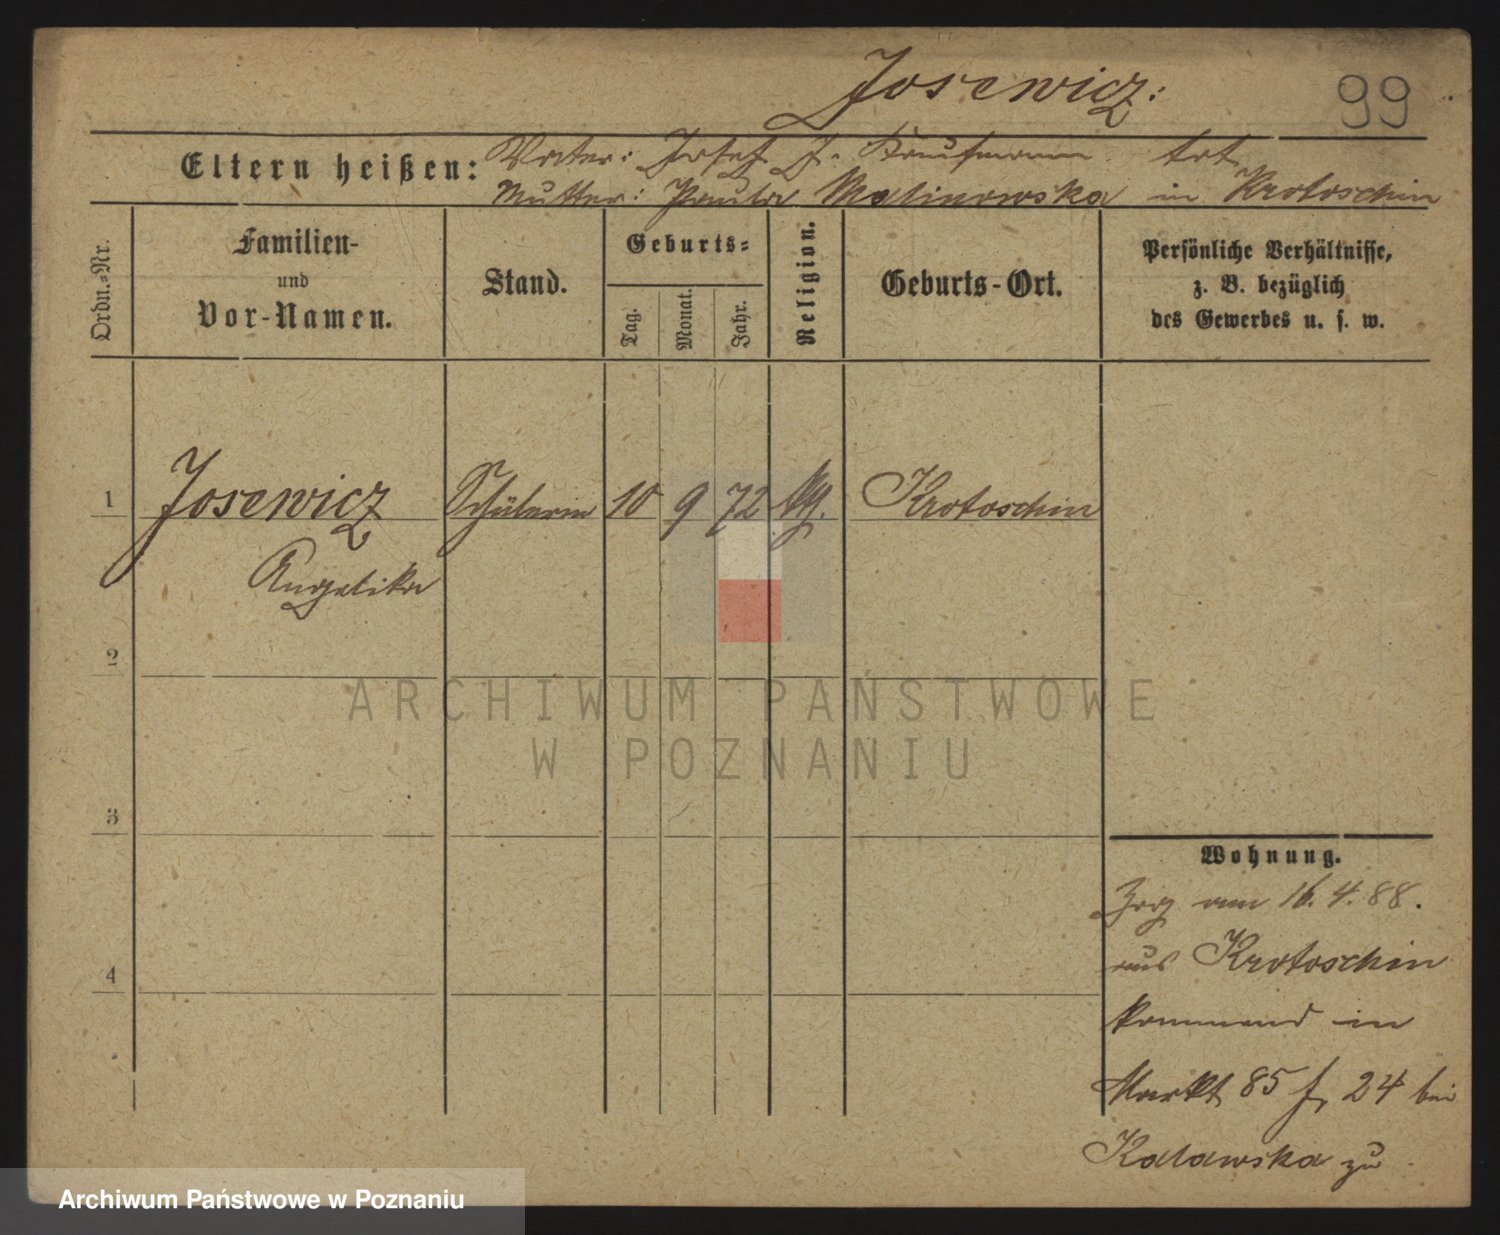 Josewicz:
99
Eltern heißen: Vater: Josef J. Kaufmann tot
Mutter: Paula Malinowska in Krotoschin
Ordn.-Nr.
Familien-
und
Vor-Namen.
Stand.
Geburts-
Tag.
Monat.
Jahr.
Religion.
Geburts-Ort.
Persönliche Verhältnisse,
z. B. bezüglich
des Gewerbes u. s. w.
1 Josewicz Schülerin 10 9 72 Krotoschin
Angelika
2
3
4
Wohnung.
Zog am 16.4.88.
aus Krotoschin
kommend in
Markt 85 f, 24 bei
Kalawska zu
ARCHIWUM PAŃSTWOWE
W POZNANIU
Archiwum Państwowe w Poznaniu